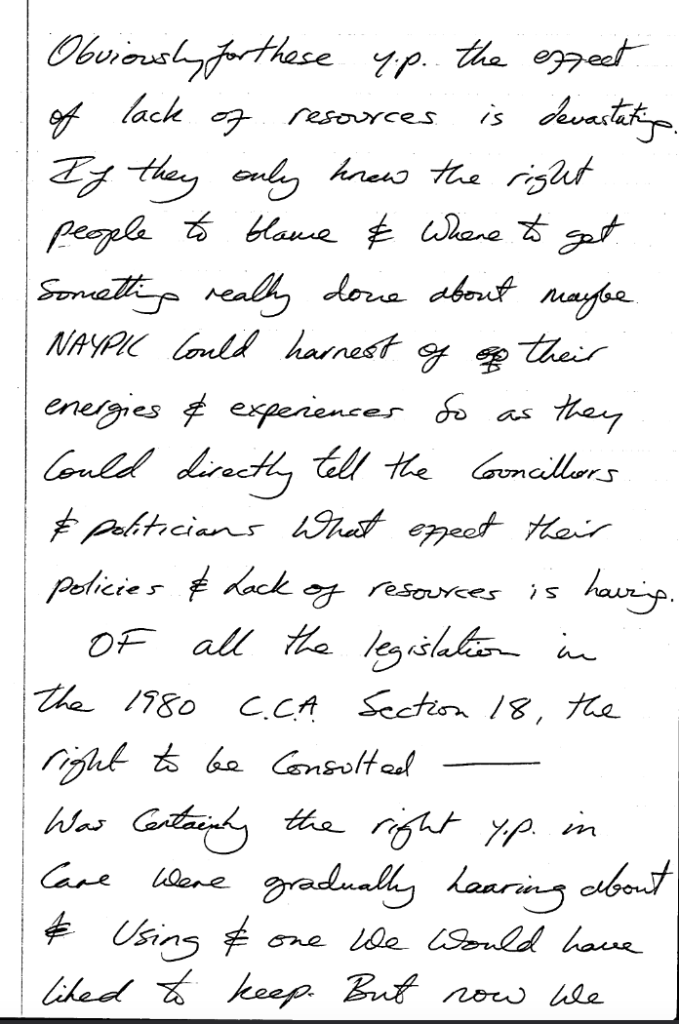 Obviously for these y.p. the effect
of lack of resources is devastating.
If they only knew the right
people to blame & where to get
something really done about maybe
NAYPIC could harnest of their
energies & experiences so as they
could directly tell the Councillors
& politicians what effect their
policies & lack of resources is having.
OF all the legislation in
the 1980 C.C.A. Section 18, the
right to be consulted —
was certainly the right y.p. in
care were gradually hearing about
& using & one we would have
liked to keep. But now we